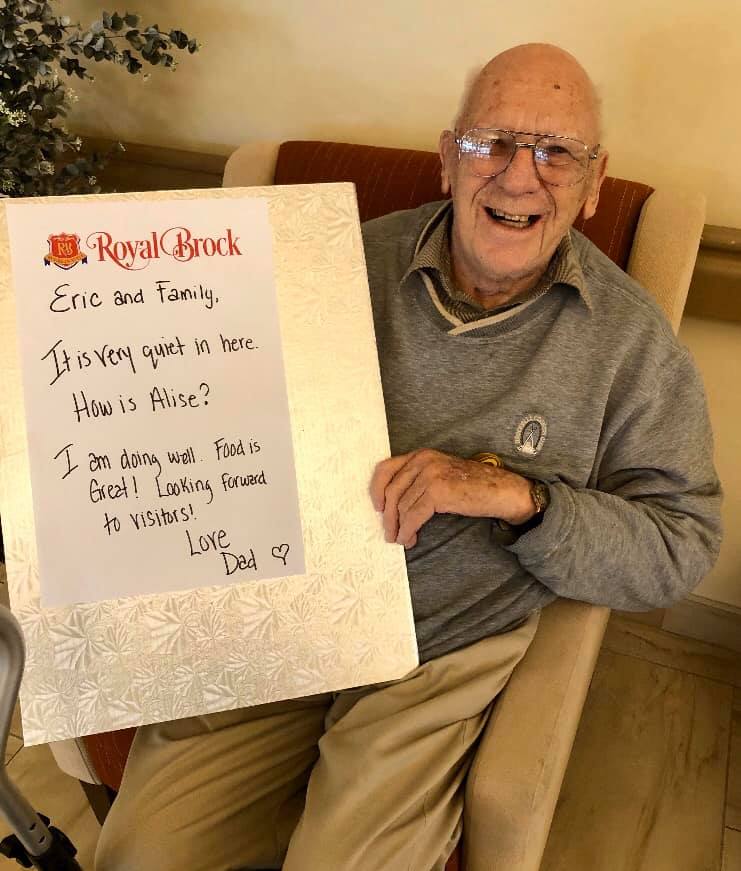 RB Royal Brock
Eric and Family,
It is very quiet in here.
How is Alise?
I am doing well. Food is
Great! Looking forward
to visitors!
Love
Dad ♡